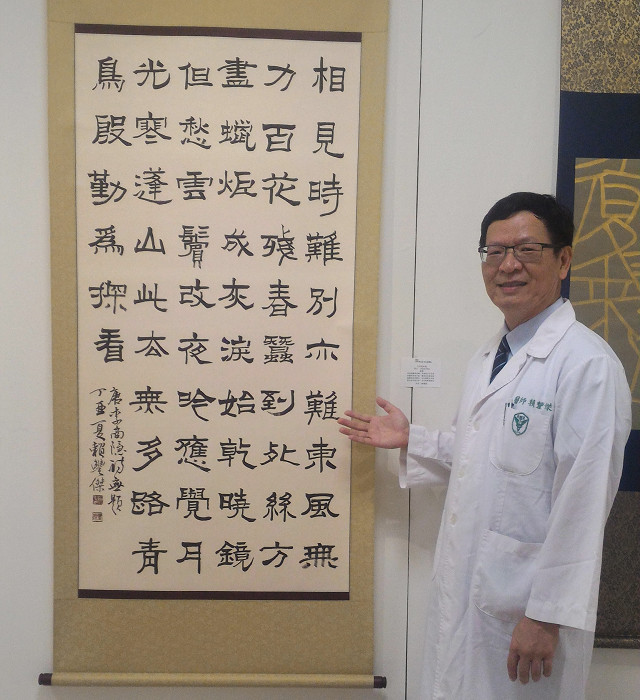 相見時難別亦難東風無
力百花殘春蠶到死絲方
盡蠟炬成灰淚始乾曉鏡
但愁雲鬢改夜吟應覺月
光寒蓬山此去無多路青
鳥殷勤爲探看
唐李商隱詩無題
丁酉夏賴豐傑
醫師賴豐傑